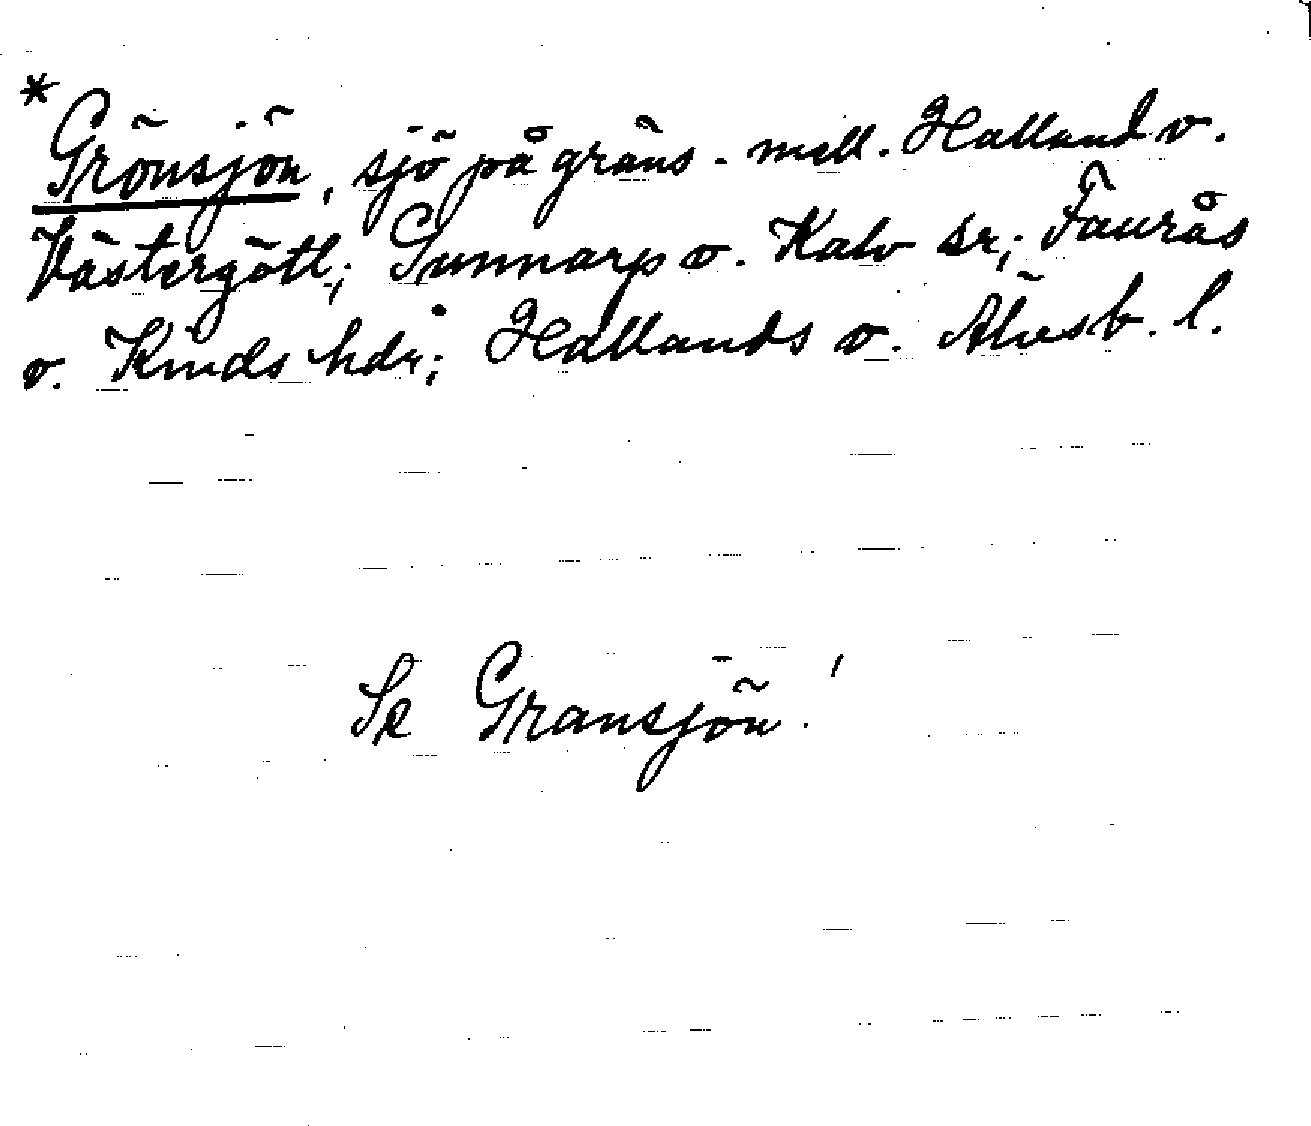 * Grönsjön, sjö på gräns - mell. Halland o.
Västergötl.; Gunnarp o. Kalv sr; Faurås
o. Kinds hdr; Hallands o. Älvsb. l.
Se Gransjön!